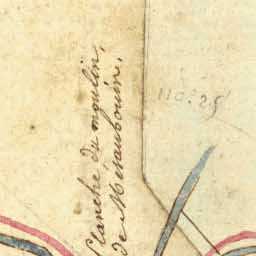 Planche du moulin,
de Mésaubouin.
110.25